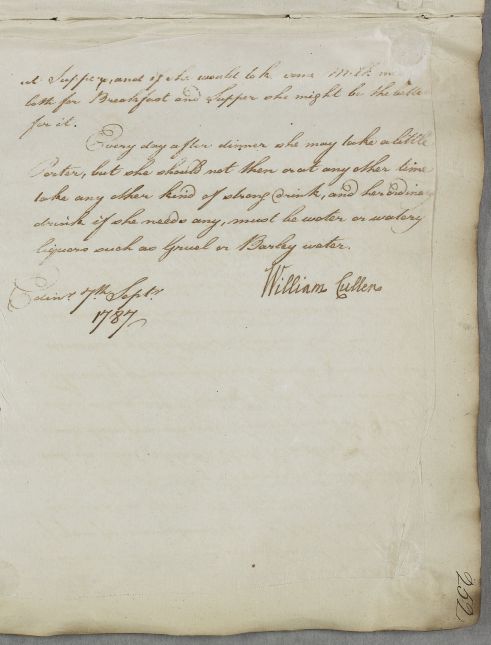 at Supper, and if she would take some Milk in
both for Breakfast and Supper she might be the better
for it.
Every day after dinner she may take a little
Porter, but she should not then or at any other time
take any other kind of strong drink, and her ordinary
drink if she needs any, must be water or watery
liquors such as Gruel or Barley water.
Edinr. 7th Septr.
1787
William Cullen
252